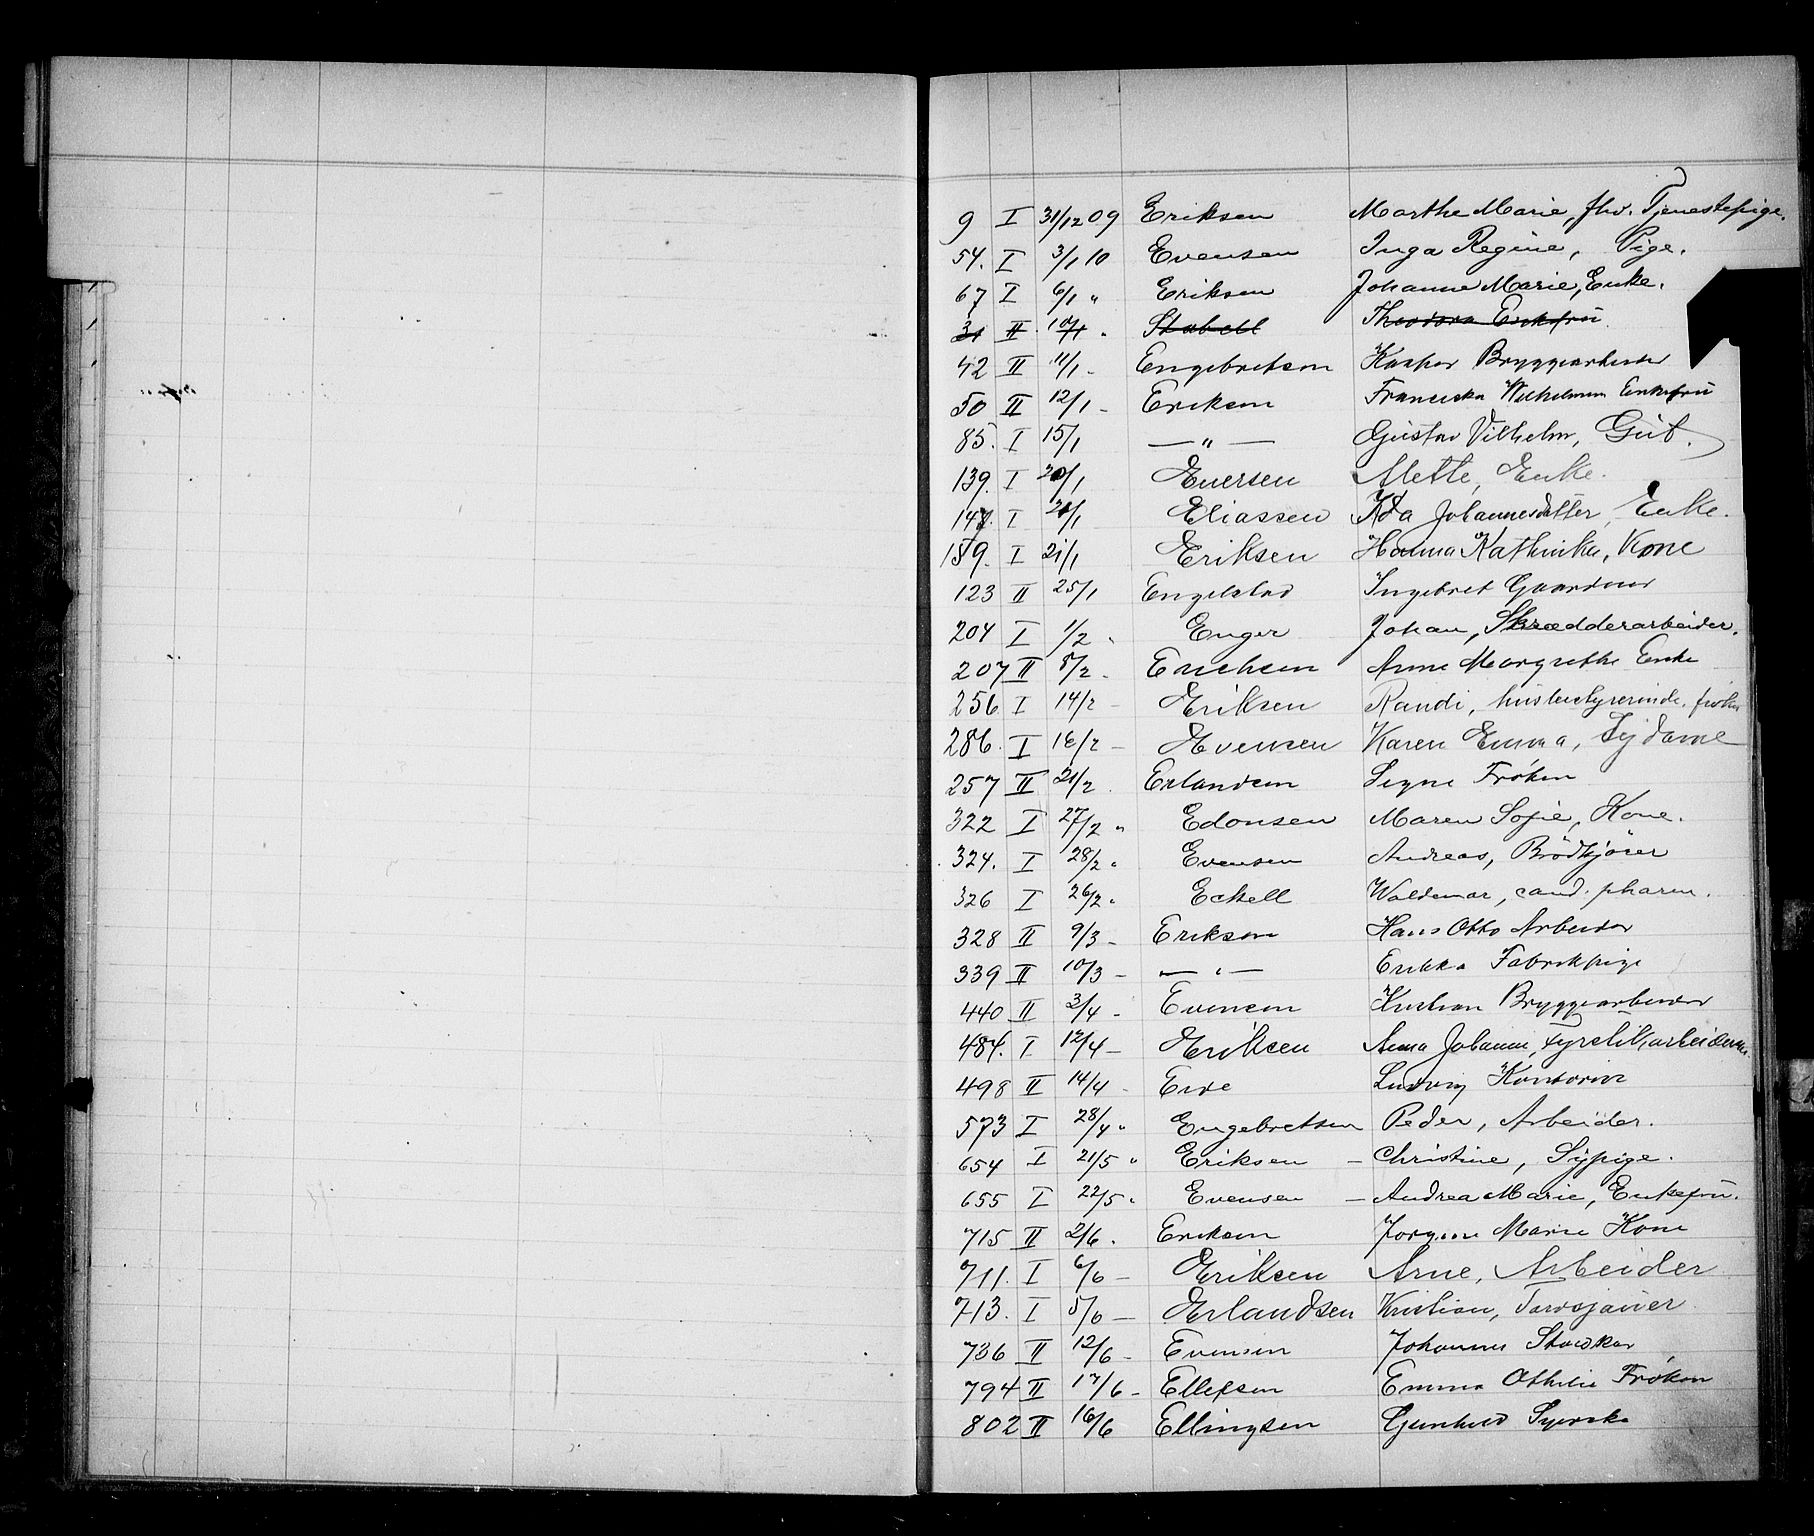 9 I 31/12 09 Eriksen Marthe Marie, fhv. Tjenestepige.
54. I 3/1 10 Evensen Inga Regine, Pige.
67 I 6/1 " Eriksen Johanne Marie, Enke.
31 II 10/1 " Stabell Theodora Enkefru
42 II 11/1 - Engebretsen Kasper Bryggearbeider
50 II 12/1 - Eriksen Franciska Wilhelmine Enkefru
85. I 15/1 — " — Gustav Vilhelm, Gut.
139. I 20/1 Evensen Mette, Enke.
147. I 21/1 Eliassen Ida Johannesdatter, Enke.
159. I 21/1 Eriksen Hanna Kathinka, Kone
123 II 25/1 Engelstad Ingebret Gaardmand
204 I 1/2 " Enger Johan, Skrædderarbeider.
207 II 5/2 - Erichsen Anne Margrethe Enke
256 I 14/2 - Eriksen Randi, husbestyrerinde, frøken
286. I 18/2 - Evensen Karen Emma, Sydame
257 II 21/2 . Erlandsen Signe Frøken
322 I 27/2 " Edonsen Maren Sofie, Kone.
324. I 28/2 " Evensen Andreas, Brødkjører
326 I 26/2 " Eckell Waldemar, cand. pharm.
328 II 9/3 - Eriksen Hans Otto Arbeider
339 II 10/3 - — " — Erikka Fabrikpige
440 II 3/4 - Evensen Kristian Bryggearbeider
484. I 12/4 - Eriksen Anna Johanne, Fyrstikarbeiderske
498 II 14/4 - Eide Ludvig Kontorist
573 I 28/4 " Engebretsen Peder, Arbeider.
654 I 21/5 " Eriksen - Christine, Sypige.
655 I 22/5 " Evensen - Andrea Marie, Enkefru.
715 II 2/6 . Eriksen Jørgine Marie Kone
711. I 6/6 - Eriksen Arne, Arbeider
713. I 5/6 - Erlandsen Kristian,
736 II 12/6 - Evensen Johannes Stadskar
794 II 17/6 - Ellefsen Emma Othilie Frøken
802 II 16/6 Ellingsen Gunhild Syerske